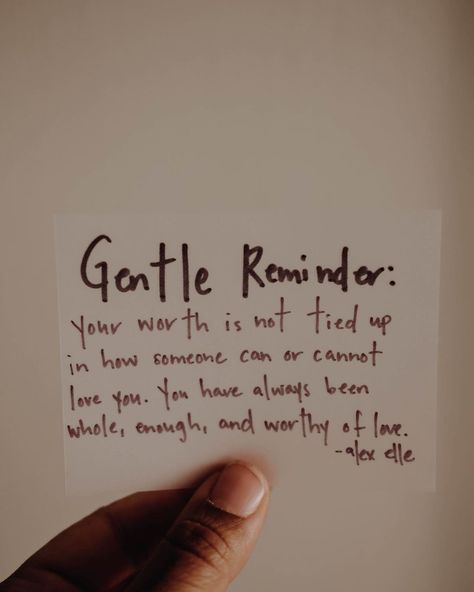 Gentle Reminder:
Your worth is not tied up
in how someone can or cannot
love you. You have always been
whole, enough, and worthy of love.
-alex elle